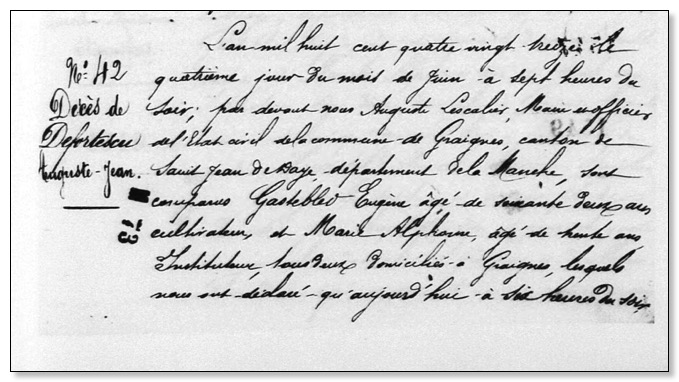 No. 42
Décès de
Auguste-Jean.
L'an mil huit cent quatre vingt treize, le
quatrième jour du mois de Juin à sept heures du
Soir; par devant nous Auguste Lescalier, Maire et officier
de l'Etat civil de la commune de Graignes, canton de
Saint Jean de Daye, département de la Manche, sont
comparus Eugène âgé de soixante deux ans
cultivateur, et Marie Alphonse, âgé de trente ans,
Instituteur, tous deux domiciliés à Graignes, lesquels
nous ont déclaré qu'aujourd'hui à six heures du soir,